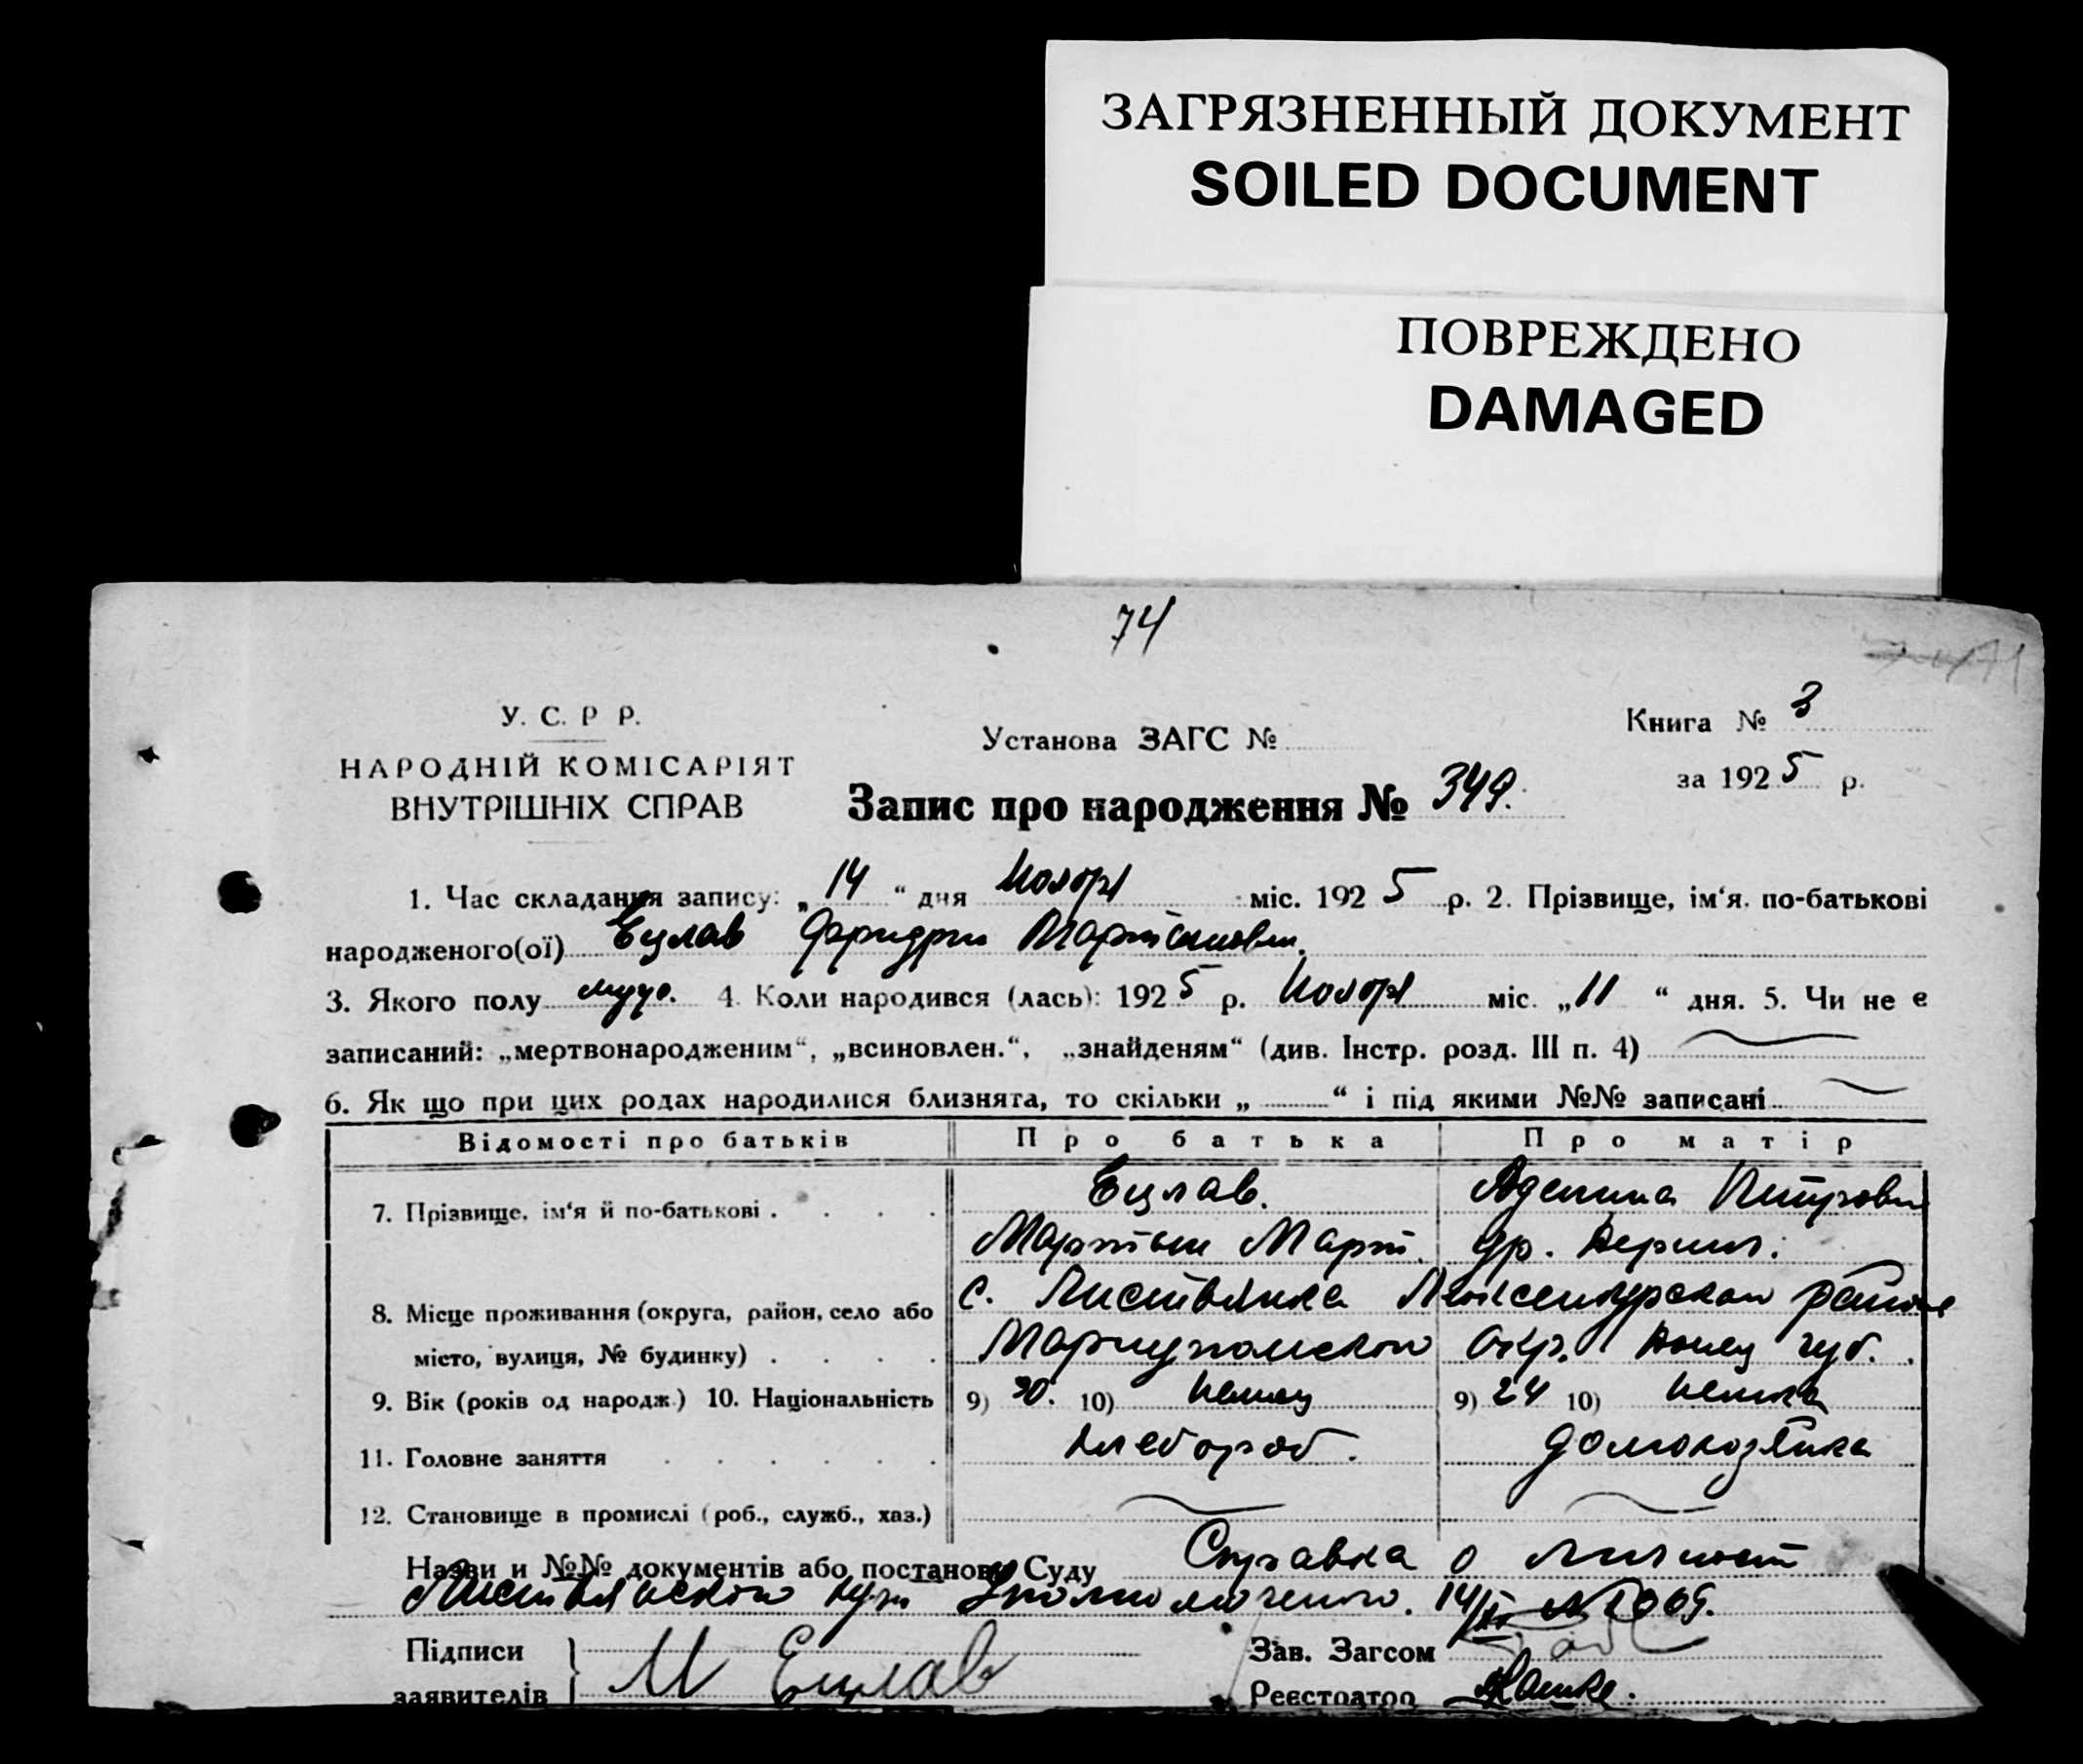 ЗАГРЯЗНЕННЫЙ ДОКУМЕНТ
SOILED DOCUMENT
ПОВРЕЖДЕНО
DAMAGED
74
У. С. Р Р.
НАРОДНІЙ КОМІСАРІЯТ
ВНУТРІШНІХ СПРАВ
Установа ЗАГС №
Книга № 3
за 1925 р.
Запис про народження № 349.
1. Час складання запису: „14“ дня Ноября міс. 1925 р. 2. Прізвище, ім‘я. по-батькові
народженого(ої) Ецлав Фридрих Мартинович.
3. Якого полу муж. 4. Коли народився (лась): 1925 р. Ноября міс. „11“ дня. 5. Чи не є
записаний: „мертвонародженим“, „всиновлен.“, „знайденям“ (див. Інстр. розд. III п. 4)
6. Як що при цих родах народилися близнята, то скільки „ “ і під якими №№ записані
Відомості про батьків Про батька Про матір
7. Прізвище, ім‘я й по-батькові Ецлав. Петровн
Мартын Март.
8. Місце проживання (округа, район, село або с. Листвянка районе
місто, вулиця, № будинку) Мариупольской Окр. Донец губ.
9. Вік (років од народж.) 10. Національність 9) 30. 10) немец 9) 24 10) немка
11. Головне заняття хлебороб. домохозяйка
12. Становище в промислі (роб., служб., хаз.)
Назви и №№ документів або постанови Суду Справка о личност
Листвянской Уполномоченого. 14/XI № 1069.
Підписи
заявителів М Ецлав
Зав. Загсом
Реєстратор